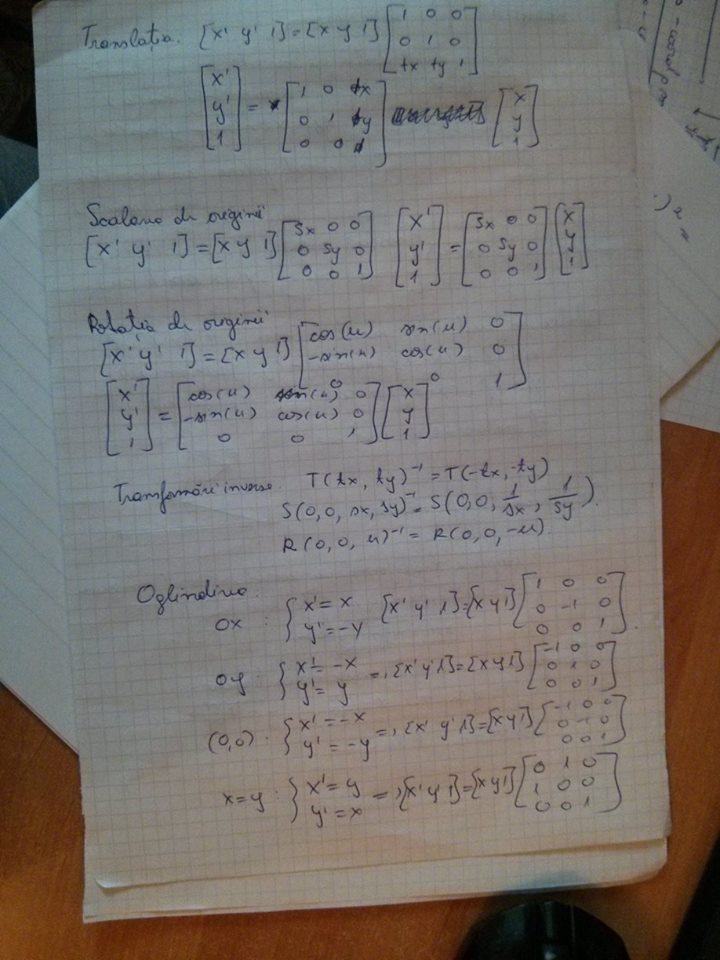 Translația. [x' y' 1] = [x y 1] [1 0 0
0 1 0
tx ty 1]
[x'
y'
1] = [1 0 tx
0 1 ty
0 0 1] [x
y
1]
Scalarea de originii
[x' y' 1] = [x y 1] [sx 0 0
0 sy 0
0 0 1] [x'
y'
1] = [sx 0 0
0 sy 0
0 0 1] [x
y
1]
Rotația de originii
[x' y' 1] = [x y 1] [cos(u) sin(u) 0
-sin(u) cos(u) 0
0 0 1]
[x'
y'
1] = [cos(u) sin(u) 0
-sin(u) cos(u) 0
0 0 1] [x
y
1]
Transformări inverse. T(tx, ty)⁻¹ = T(-tx, -ty)
S(0,0, sx, sy)⁻¹ = S(0,0, 1/sx, 1/sy).
R(0,0, u)⁻¹ = R(0,0, -u).
Oglindirea.
Ox : { x' = x
y' = -y [x' y' 1] = [x y 1] [1 0 0
0 -1 0
0 0 1].
Oy : { x' = -x
y' = y =, [x' y' 1] = [x y 1] [-1 0 0
0 1 0
0 0 1]
(0,0) : { x' = -x
y' = -y =, [x' y' 1] = [x y 1] [-1 0 0
0 -1 0
0 0 1]
x=y : { x' = y
y' = x =, [x' y' 1] = [x y 1] [0 1 0
1 0 0
0 0 1]